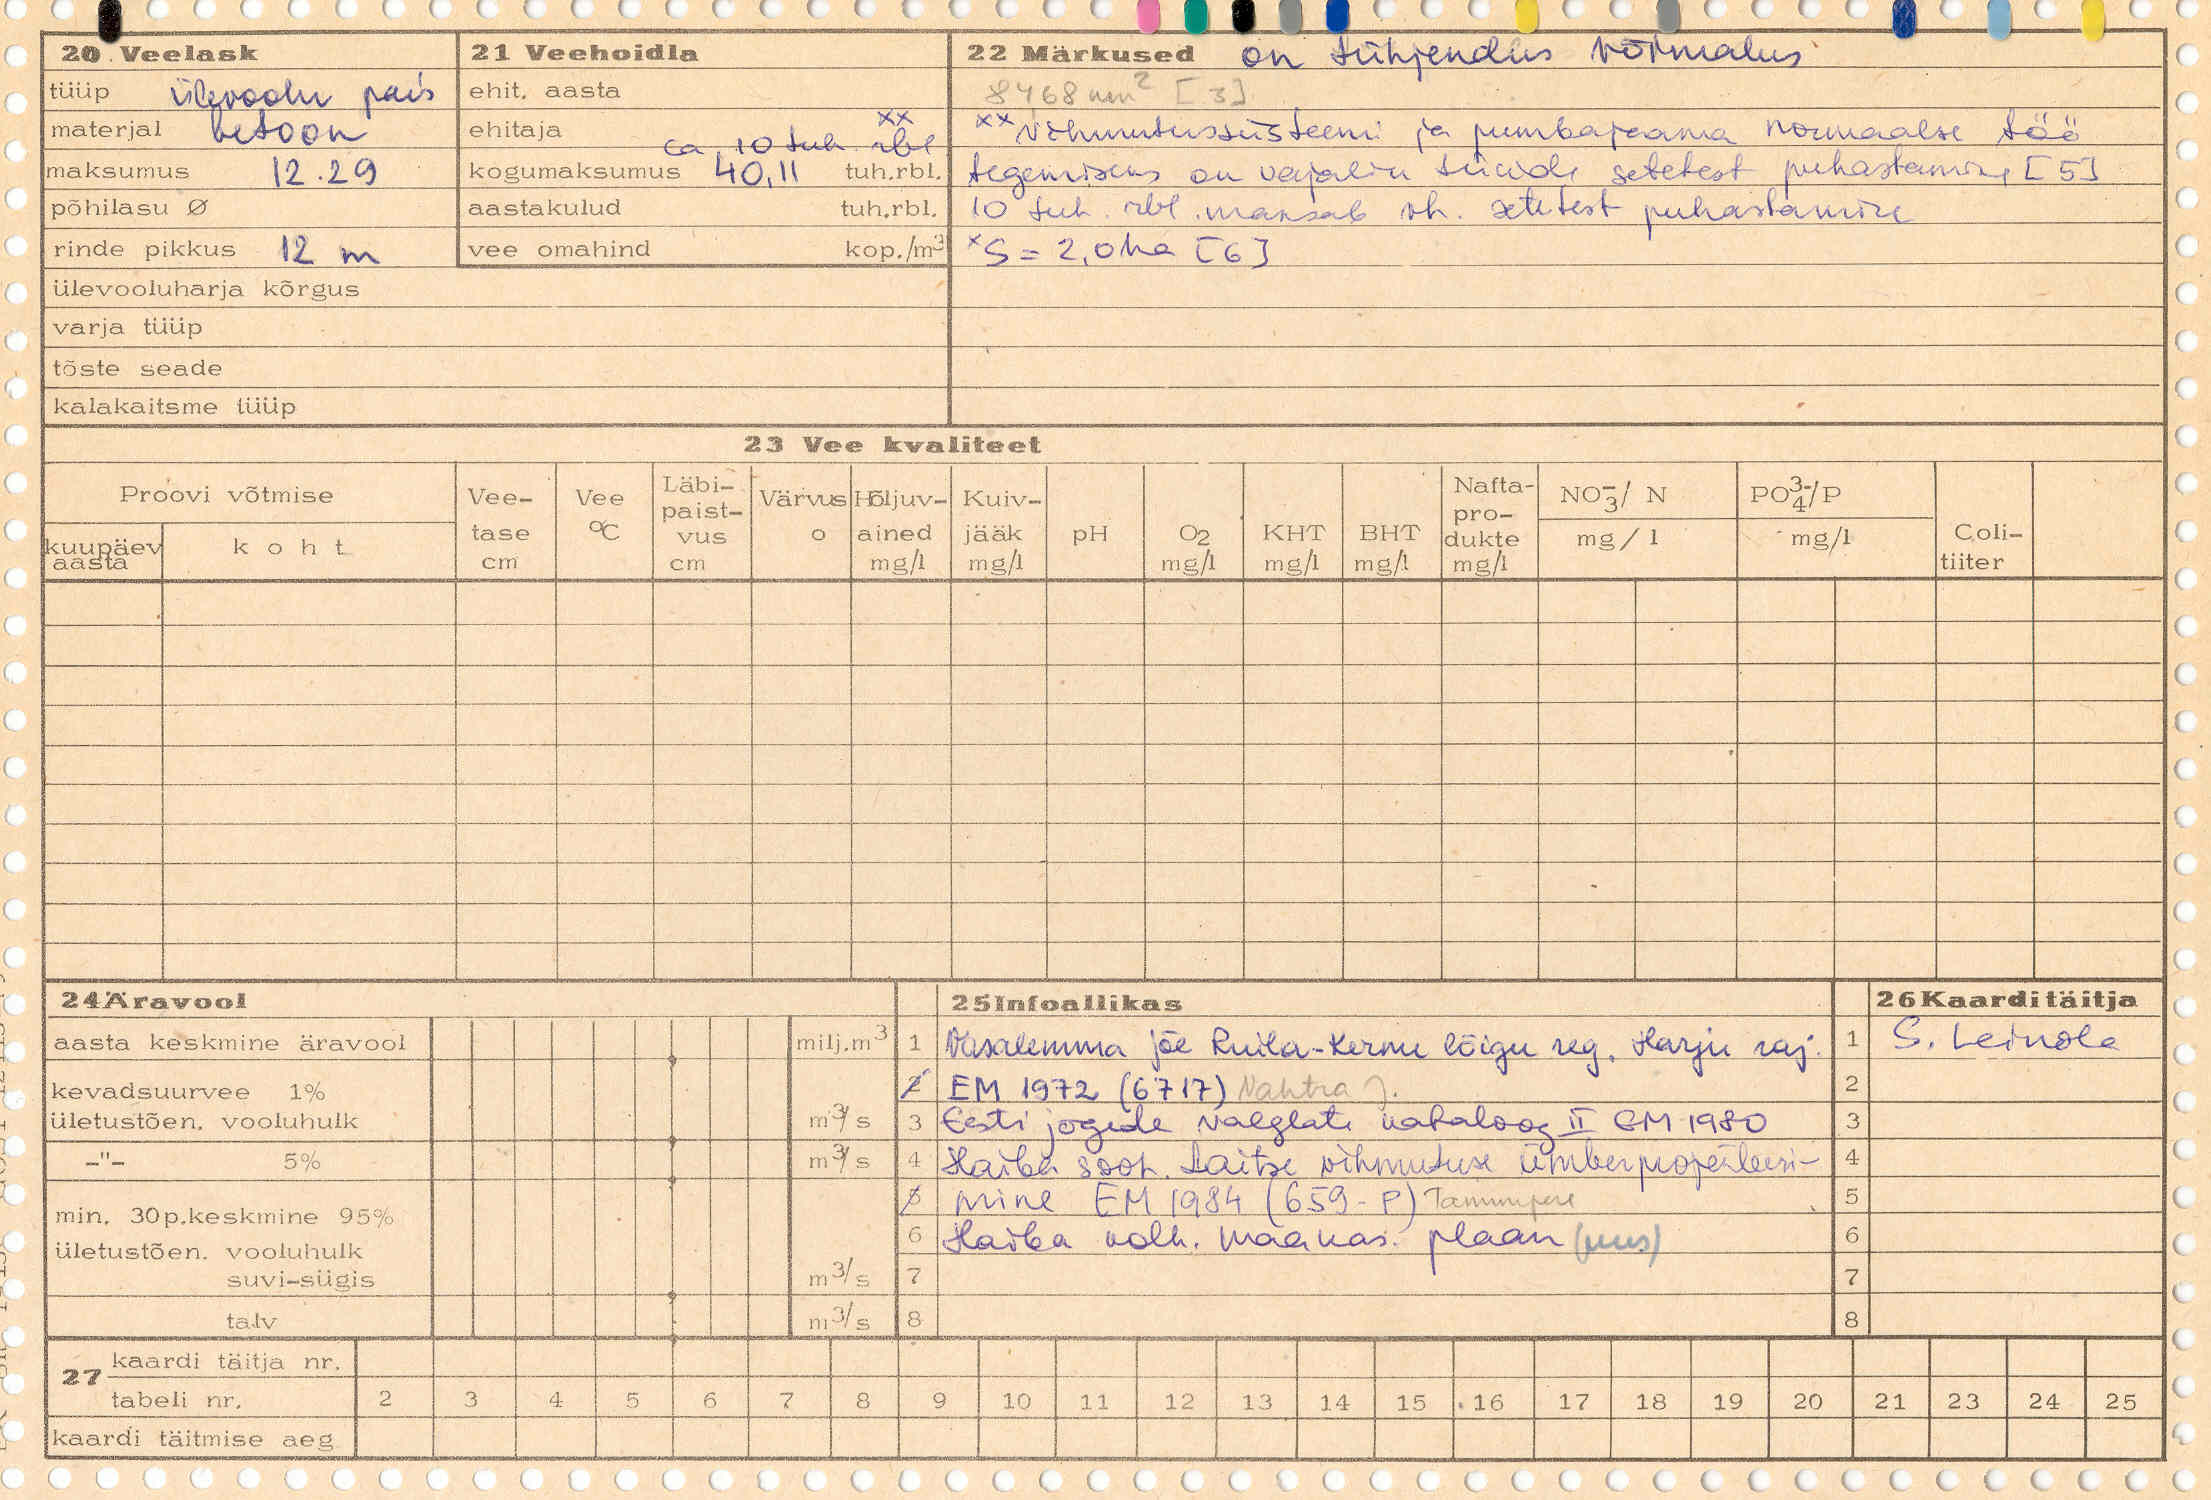 20 Veelask
tüüp ülevoolu pais
materjal betoon
maksumus 12.29
põhilasu Ø
rinde pikkus 12 m
ülevooluharja kõrgus
varja tüüp
tõste seade
kalakaitsme tüüp
21 Veehoidla
ehit. aasta
ehitaja
ca 10 tuh. rbl xx
kogumaksumus 40,11 tuh.rbl.
aastakulud tuh.rbl.
vee omahind kop./m³
22 Märkused on tühjendus võimalus
8468 mm² [3]
xx Vihmutussüsteemi ja pumbajaama normaalse töö
tegemiseks on vajalik tiikide setetest puhastamine [5]
10 tuh. rbl. maksab vh. setetest puhastamine
x S = 2,0 ha [6]
23 Vee kvaliteet
Proovi võtmise
kuupäev aasta
koht
Vee-tase cm
Vee °C
Läbi-paist-vus cm
Värvus o
Hõljuv-ained mg/l
Kuiv-jääk mg/l
pH
O2 mg/l
KHT mg/l
BHT mg/l
Nafta-pro-dukte mg/l
NO₃⁻/ N mg/l
PO₄³⁻/P mg/l
Coli-tiiter
24 Äravool
aasta keskmine äravool milj.m³
kevadsuurvee 1%
ületustõen. vooluhulk m³/s
-"- 5% m³/s
min. 30p.keskmine 95%
ületustõen. vooluhulk
suvi-sügis m³/s
talv m³/s
25 Infoallikas
1 Vasalemma jõe Ruila-Kernu lõigu reg. Harju raj.
2 EM 1972 (6717) Nahtra J.
3 Eesti jõgede valglate kataloog II EM 1980
4 Haiba sovh. Laitse vihmutuse ümberprojekteeri-
5 mine EM 1984 (659-P) Tammepere
6 Haiba kolh. maakas. plaan (uus)
7
8
26 Kaarditäitja
1 S. Leinola
2
3
4
5
6
7
8
27 kaardi täitja nr.
tabeli nr. 2 3 4 5 6 7 8 9 10 11 12 13 14 15 16 17 18 19 20 21 23 24 25
kaardi täitmise aeg